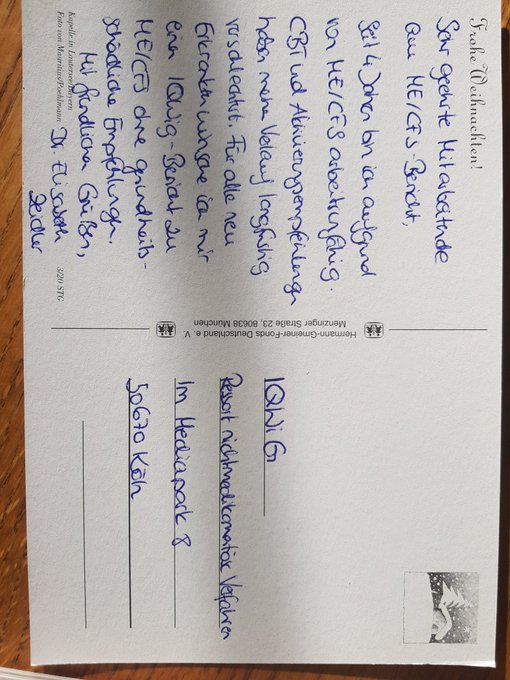 Frohe Weihnachten!
Sehr geehrte Mitarbeitende
am ME/CFS-Bericht,
seit 4 Jahren bin ich aufgrund
von ME/CFS arbeitsunfähig.
CBT und Aktivierungsempfehlungen
haben meinen Verlauf langfristig
verschlechtert. Für alle neu
Erkrankten wünsche ich mir
einen IQWiG-Bericht zu
ME/CFS ohne gesundheits-
schädliche Empfehlungen.
Mit freundlichen Grüßen,
Dr. Elisabeth
Zeidler
Kapelle in Lautersee/Bayern
Foto von Mauritius/Poehlmann
3/20 STG
Hermann-Gmeiner-Fonds Deutschland e. V.
Menzinger Straße 23, 80638 München
IQWiG
Ressort nichtmedikamentöse Verfahren
Im Mediapark 8
50670 Köln